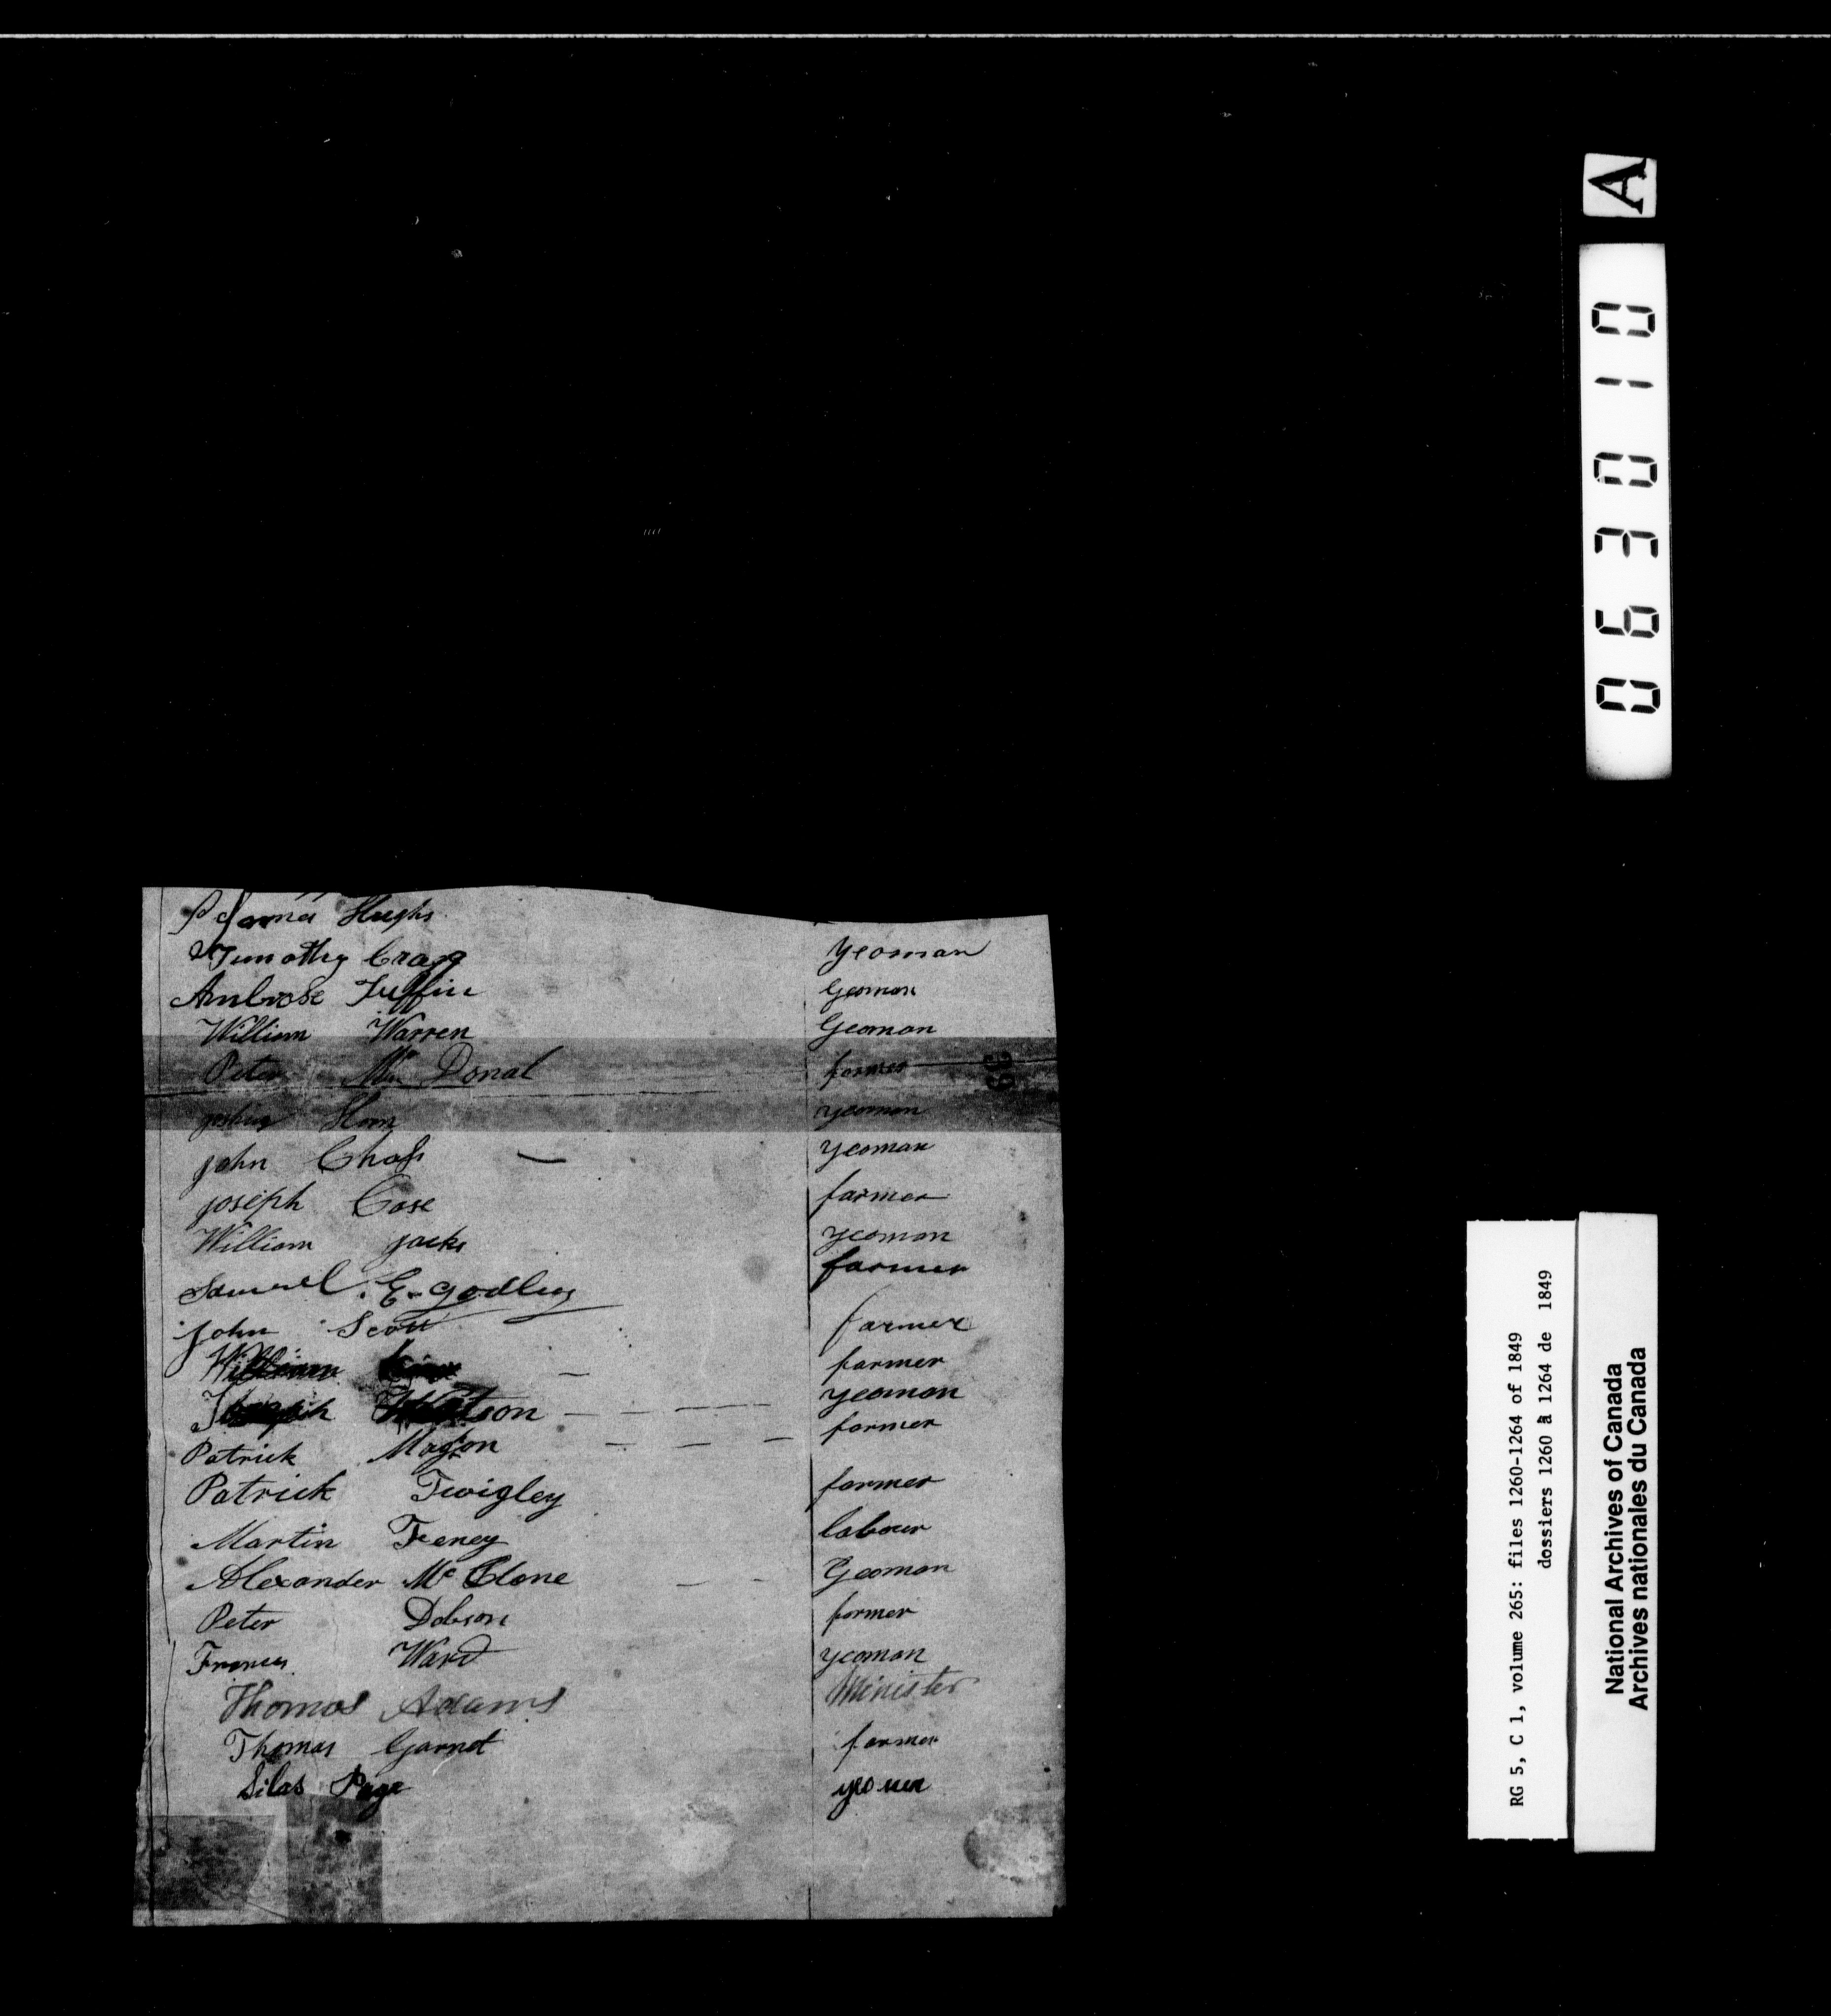 Hughs
Timothy Cragg yeoman
Ambrose Tuffin yeoman
William Warren yeoman
Peter Mc Donal farmer
yeoman
john Chafs yeoman
joseph Case farmer
William jacks yeoman
Samuel. E. Godley farmer
john Scott farmer
William farmer
Joseph Watson yeoman
Patrick farmer
Patrick Twigley farmer
Martin Feney labour
Alexander Mc Clone yeoman
Peter Dobson farmer
Frances Ward yeoman
Thomas Adams Minister
Thomas Garnet farmer
Silas Page
A
063010
RG 5, C 1, volume 265: files 1260-1264 of 1849
dossiers 1260 à 1264 de 1849
National Archives of Canada
Archives nationales du Canada